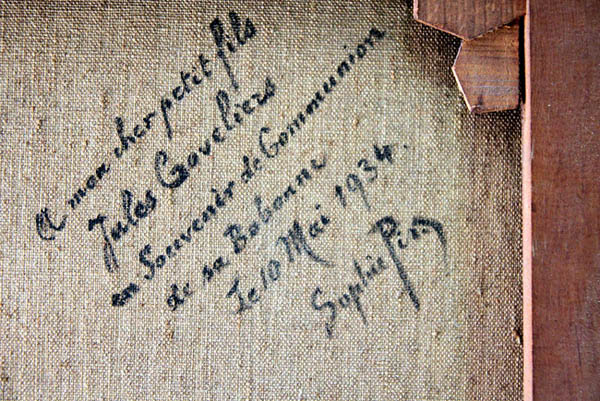 A mon cher petit fils
Jules Goveliers
en Souvenir de Communion
de sa Bobonne
Le 10 Mai 1934.
Sophie